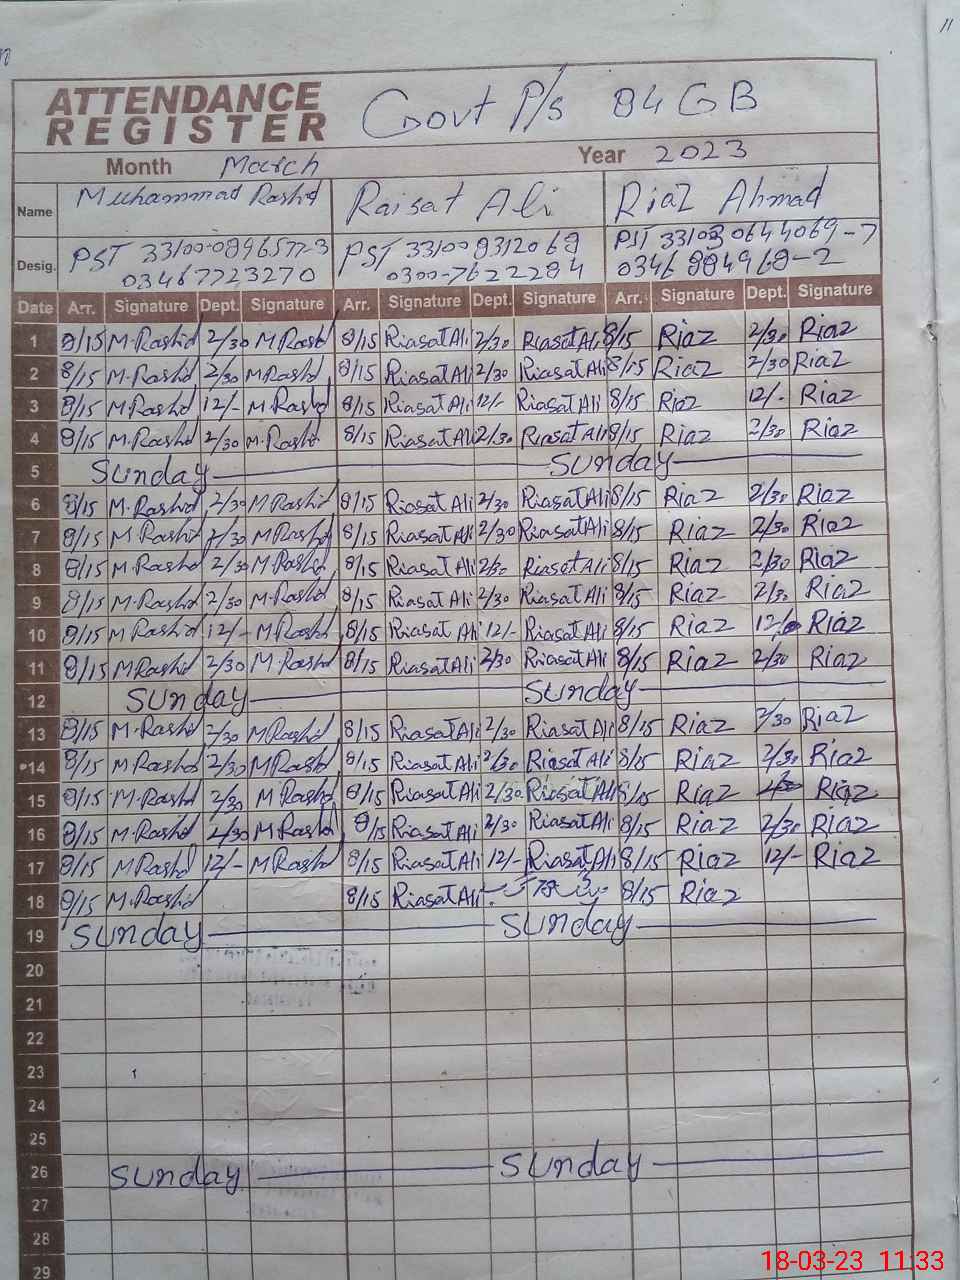 ATTENDANCE
REGISTER
Govt P/s 84 GB
Month March Year 2023
Name Muhammad Rashid Raisat Ali Riaz Ahmad
Desig. PST 33100-0896577-3 PST 33100 8312069 PST 33103 0644069-7
03467723270 0300-7622284 0346 884968-2
Date Arr. Signature Dept. Signature Arr. Signature Dept. Signature Arr. Signature Dept. Signature
1 8/15 M.Rashid 2/30 M Rashid 8/15 Riasat Ali 2/30 Riasat Ali 8/15 Riaz 2/30 Riaz
2 8/15 M.Rashid 2/30 M.Rashid 8/15 Riasat Ali 2/30 Riasat Ali 8/15 Riaz 2/30 Riaz
3 8/15 M.Rashid 12/- M.Rashid 8/15 Riasat Ali 12/- Riasat Ali 8/15 Riaz 12/- Riaz
4 8/15 M.Rashid 2/30 M.Rashid 8/15 Riasat Ali 2/30 Riasat Ali 8/15 Riaz 2/30 Riaz
5 Sunday Sunday
6 8/15 M.Rashid 2/30 M Rashid 8/15 Riasat Ali 2/30 Riasat Ali 8/15 Riaz 2/30 Riaz
7 8/15 M.Rashid 2/30 M Rashid 8/15 Riasat Ali 2/30 Riasat Ali 8/15 Riaz 2/30 Riaz
8 8/15 M.Rashid 2/30 M.Rashid 8/15 Riasat Ali 2/30 Riasat Ali 8/15 Riaz 2/30 Riaz
9 8/15 M.Rashid 2/30 M.Rashid 8/15 Riasat Ali 2/30 Riasat Ali 8/15 Riaz 2/30 Riaz
10 8/15 M Rashid 12/- M Rashid 8/15 Riasat Ali 12/- Riasat Ali 8/15 Riaz Riaz
11 8/15 M.Rashid 2/30 M.Rashid 8/15 Riasat Ali 2/30 Riasat Ali 8/15 Riaz 2/30 Riaz
12 Sunday Sunday
13 8/15 M.Rashid 2/30 M Rashid 8/15 Riasat Ali 2/30 Riasat Ali 8/15 Riaz 2/30 Riaz
14 8/15 M.Rashid 2/30 M Rashid 8/15 Riasat Ali 2/30 Riasat Ali 8/15 Riaz 2/30 Riaz
15 8/15 M.Rashid 2/30 M Rashid 8/15 Riasat Ali 2/30 Riasat Ali 8/15 Riaz Riaz
16 8/15 M.Rashid 2/30 M Rashid 8/15 Riasat Ali 2/30 Riasat Ali 8/15 Riaz 2/30 Riaz
17 8/15 M Rashid 12/- M Rashid 8/15 Riasat Ali 12/- Riasat Ali 8/15 Riaz 12/- Riaz
18 8/15 M.Rashid 8/15 Riasat Ali 8/15 Riaz
19 Sunday Sunday
20
21
22
23
24
25
26 Sunday Sunday
27
28
29
18-03-23 11:33